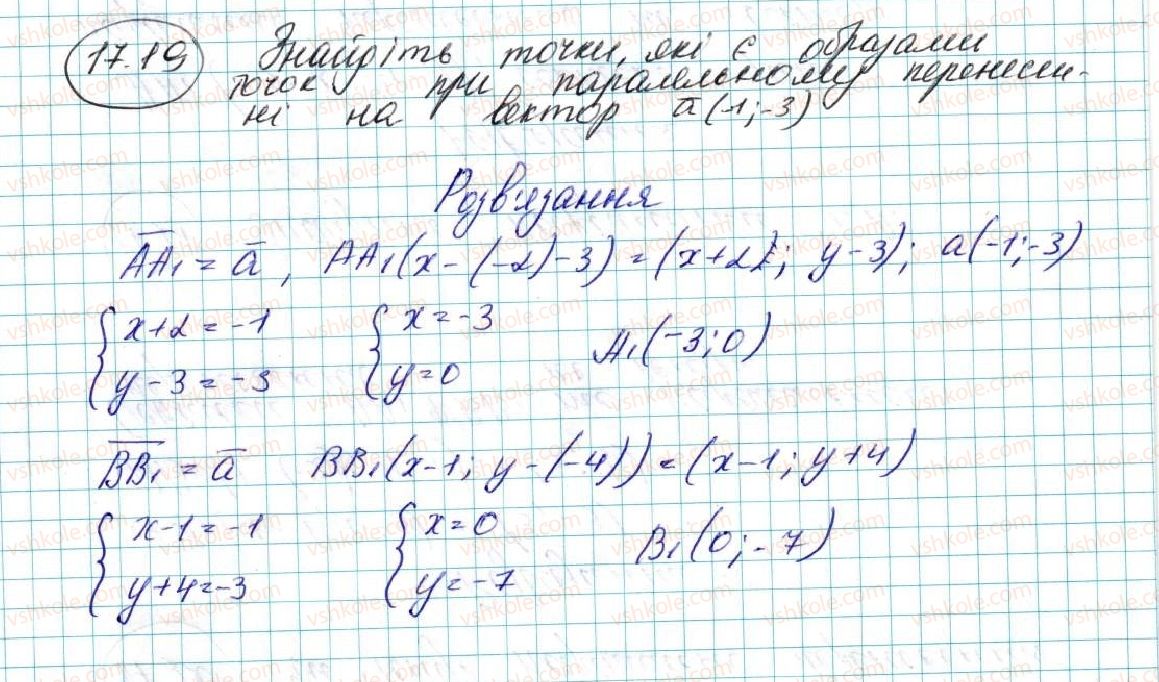 17.19 Знайдіть точки, які є образами
точок при паралельному перенесен-
ні на вектор a̅(-1;-3)
Розв'язання
A̅A̅₁ = a̅, AA₁(x-(-2)-3) = (x+2); y-3); a(-1;-3)
{x+2=-1 {x=-3
A₁(-3;0)
y-3=-3 y=0
B̅B̅₁ = a̅ BB₁(x-1; y-(-4)) = (x-1; y+4)
{x-1=-1 {x=0
B₁(0;-7)
y+4=-3 y=-7